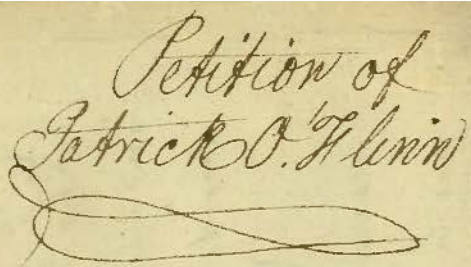 Petition of
Patrick O'Flinn